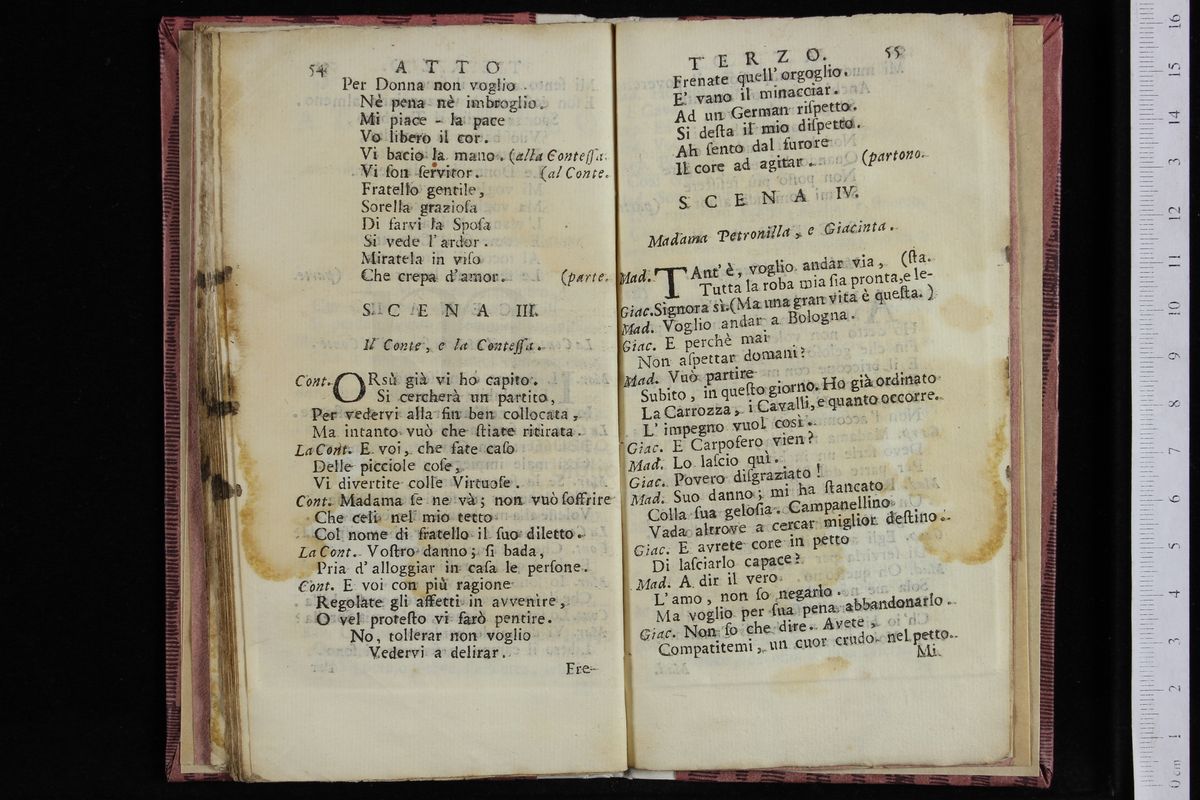 54 ATTO
Per Donna non voglio
Nè pena nè imbroglio.
Mi piace - la pace
Vo libero il cor.
Vi bacio la mano. (alla Contessa.
Vi son servitor. (al Conte.
Fratello gentile,
Sorella graziosa
Di farvi la Sposa
Si vede l'ardor.
Miratela in viso
Che crepa d'amor. (parte.
SCENA III.
Il Conte, e la Contessa.
Cont. ORsù già vi ho capito.
Si cercherà un partito,
Per vedervi alla fin ben collocata,
Ma intanto vuò che stiate ritirata.
La Cont. E voi, che fate caso
Delle picciole cose,
Vi divertite colle Virtuose.
Cont. Madama se ne và; non vuò soffrire
Che celi nel mio tetto
Col nome di fratello il suo diletto.
La Cont. Vostro danno; si bada,
Pria d'alloggiar in casa le persone.
Cont. E voi con più ragione
Regolate gli affetti in avvenire,
O vel protesto vi farò pentire.
No, tollerar non voglio
Vedervi a delirar.
Fre-
TERZO. 55
Frenate quell'orgoglio.
E' vano il minacciar.
Ad un German rispetto.
Si desta il mio dispetto.
Ah sento dal furore
Il core ad agitar. (partono.
SCENA IV.
Madama Petronilla, e Giacinta.
Mad. TAnt'è, voglio andar via, (sta.
Tutta la roba mia sia pronta, e le-
Giac. Signora sì. (Ma una gran vita è questa.)
Mad. Voglio andar a Bologna.
Giac. E perchè mai
Non aspettar domani?
Mad. Vuò partire
Subito, in questo giorno. Ho già ordinato
La Carrozza, i Cavalli, e quanto occorre.
L'impegno vuol così.
Giac. E Carpofero vien?
Mad. Lo lascio quì.
Giac. Povero disgraziato!
Mad. Suo danno; mi ha stancato
Colla sua gelosia. Campanellino
Vada altrove a cercar miglior destino.
Giac. E avrete core in petto
Di lasciarlo capace?
Mad. A dir il vero
L'amo, non so negarlo.
Ma voglio per sua pena abbandonarlo.
Giac. Non so che dire. Avete,
Compatitemi, un cuor crudo nel petto.
Mi